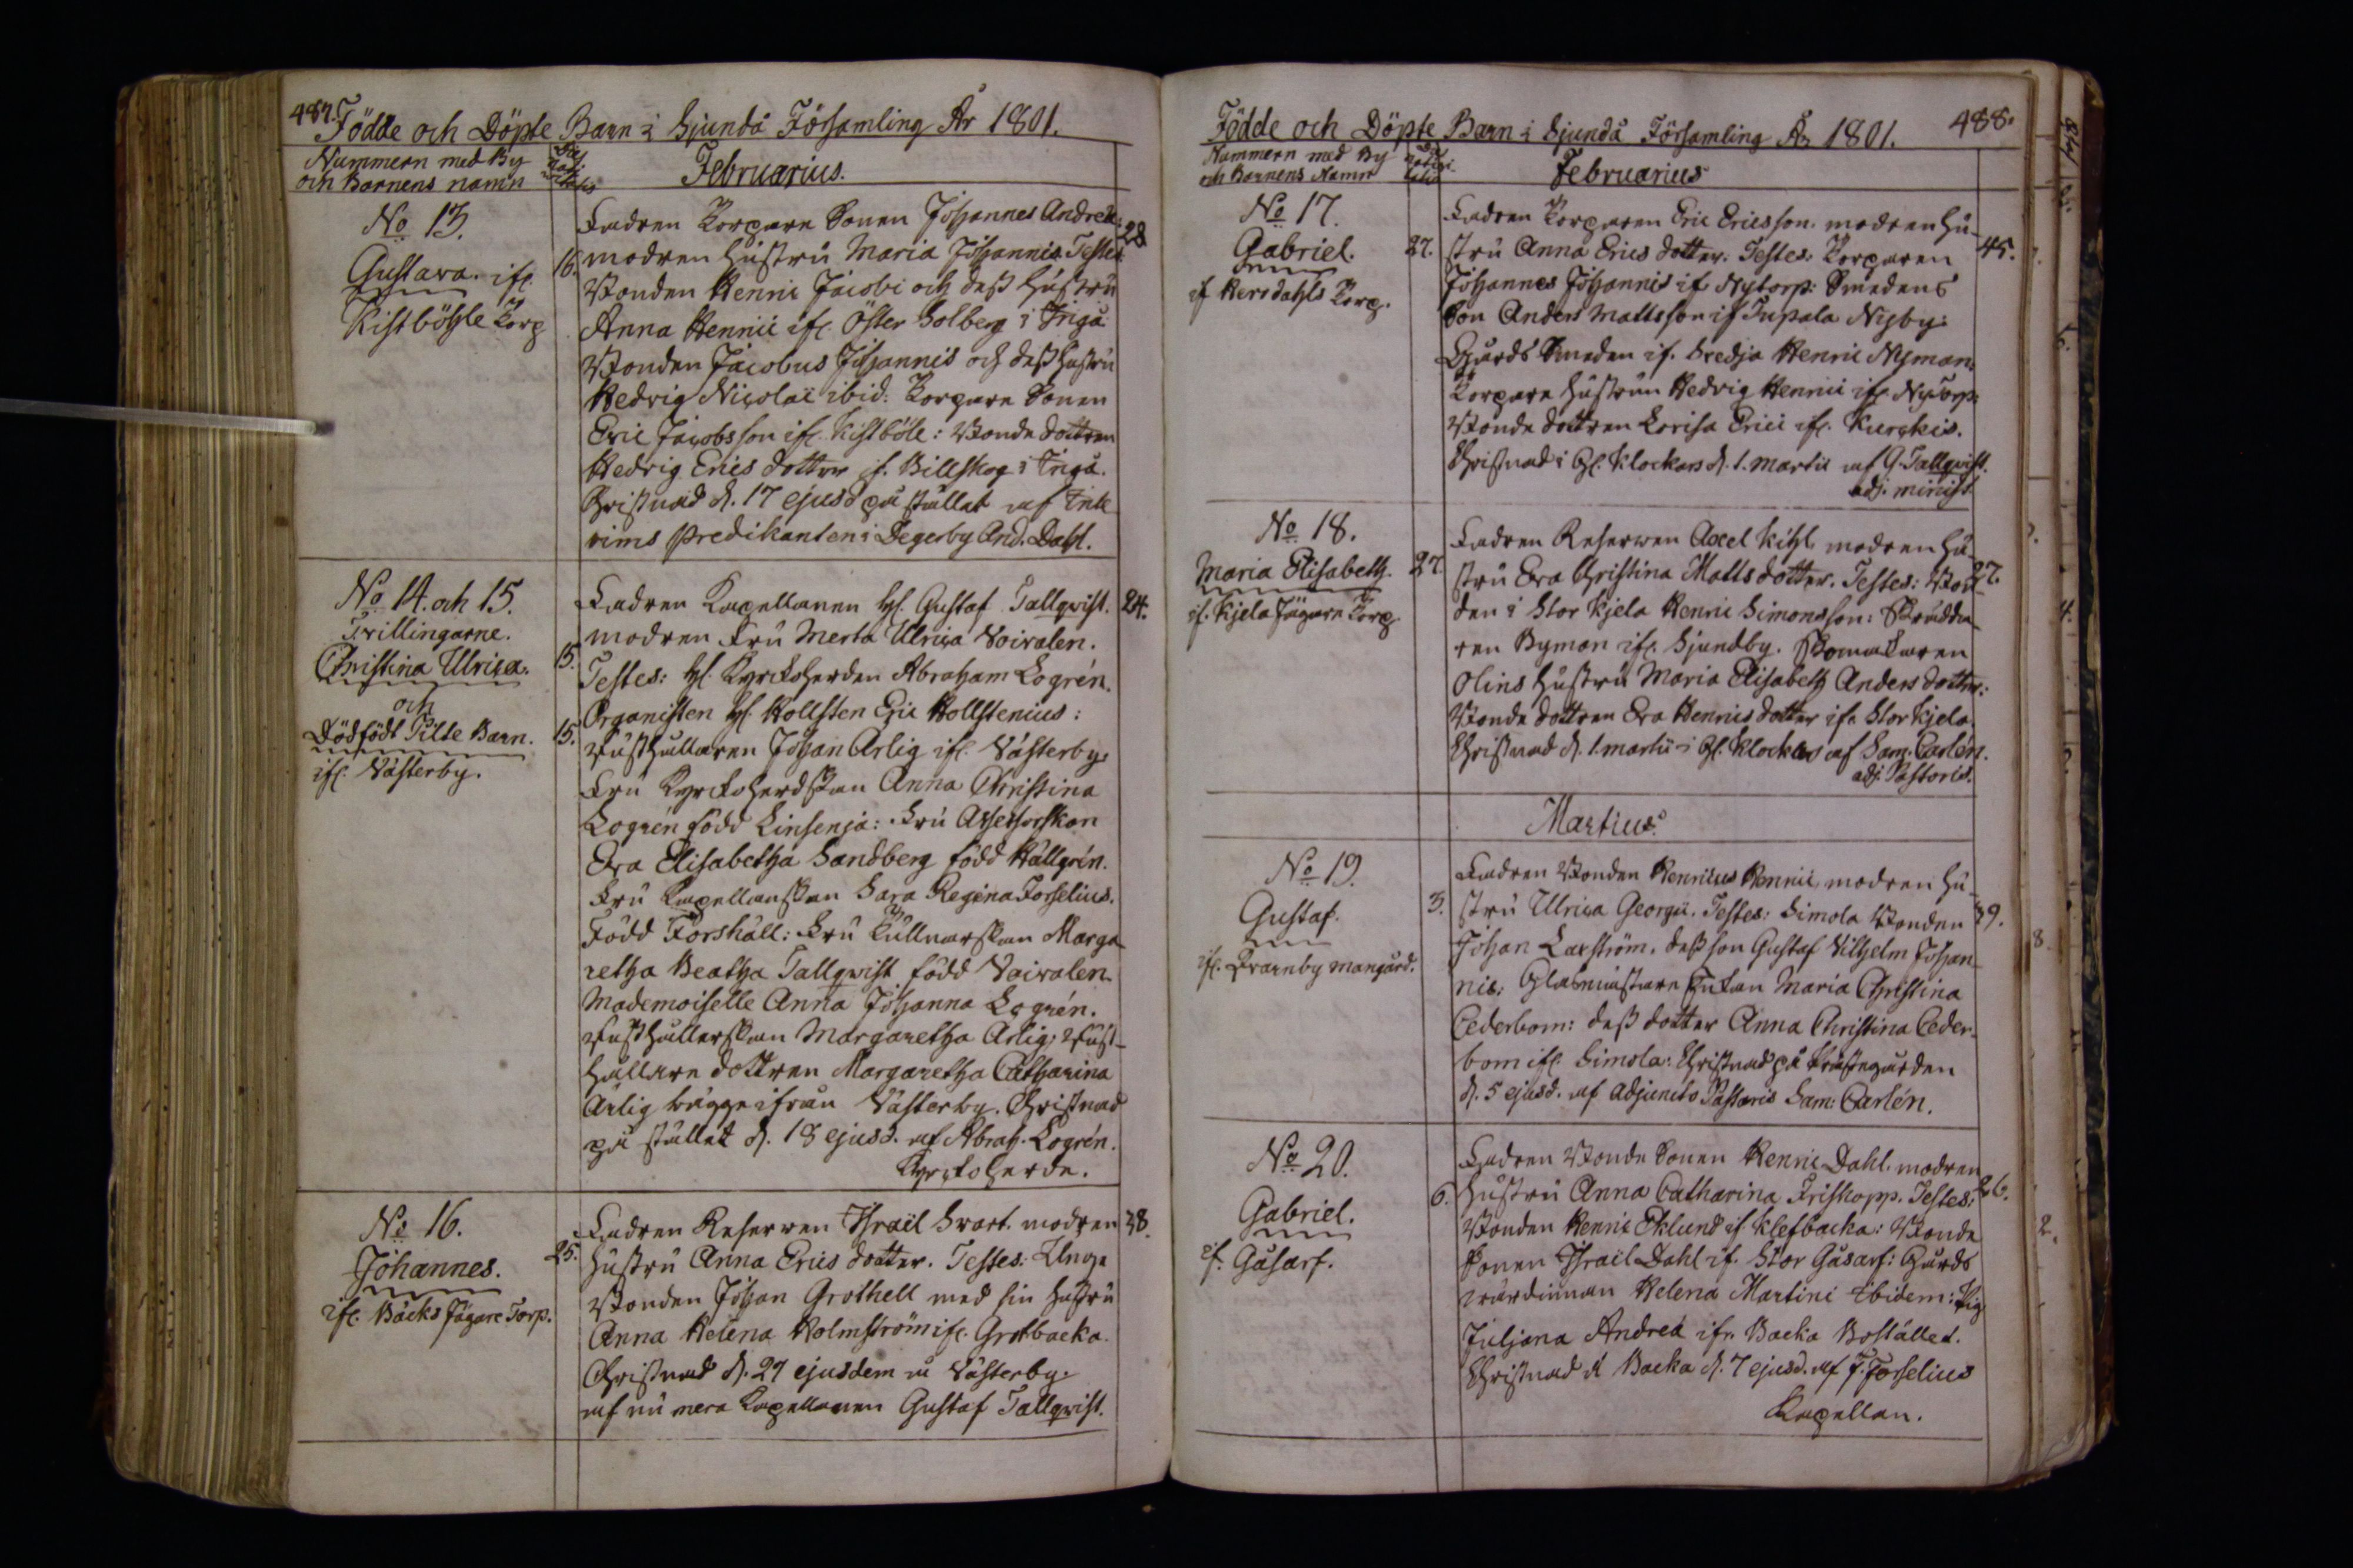 487.
Födde och Döpte Barn i Sjundå Församling År 1801.
Nummern med By
och Barnens namn
Dag
Nata-
litus
Februarius.
No 13.
Gustava. ifr.
Kistböhle Torp
16.
Fadren Torpare Sonen Johannes Andreæ:
modren hustru Maria Johannis. Testes
Bonden Henric Jacobi och dess hustru
Anna Henrici ifr. Öster Solberg i Ingå
Bonden Jacobus Johannis och dess hustru
Hedvig Nicolai ibid: Torpare Sonen
Eric Jacobsson ifr. Kistböle: Bonde dottren
Hedvig Erics dotter if. Billskog i Ingå.
Christnad d. 17 ejusd på stället af Inte
rims Predikanten i Degerby And. Dahl.
28
No 14. och 15.
Tvillingarne.
Christina Ulrica.
och
Dödfödt Pilte Barn.
ifr. Västerby.
15.
15.
Fadren Kapellanen Hr. Gustaf Tallqvist.
modren Fru Merta Ulrica Voivalen.
Testes: Hr. Kyrckoherden Abraham Logrén.
Organisten Hr. Hollsten Eric Hollstenius:
Rusthållaren Johan Arlig ifr. Västerby.
Fru Kyrckoherdskan Anna Christina
Logrén född Linsenja: Fru Assessorskan
Eva Elisabetha Sandberg född Hällgrén.
Fru Kapellanskan Sara Regina Forselius.
Född Forshäll: Fru Tullnarskan Marga
retha Beatha Tallqvist född Voivalen
Mademoiselle Anna Johanna Logrén.
Rusthållerskan Margaretha Arlig, Rust-
hållare dottren Margaretha Catharina
Arlig bägge ifrån Västerby. Christnad
på stället d. 18 ejusd. af Abrah. Logrén.
Kyrckoherde.
24.
No 16.
Johannes.
ifr. Bäcks Jägare Torp.
25.
Fadren Reserven Israël Svart. modren
hustru Anna Erics dotter. Testes: Unga
Bonden Johan Grothell med sin hustru
Anna Helena Holmström ifr. Grotbacka.
Christnad d. 27 ejusdem a Västerby.
af nu mera Kapellanen Gustaf Tallqvist.
38.
Födde och Döpte Barn i Sjundå Församling År 1801.
488.
Nummern med By
och Barnens Namn
Februarius
No 17.
Gabriel.
if Hersdahls Torp.
27.
Fadren Torparen Eric Ericsson. modren Hu-
stru Anna Erics dotter. Testes: Torparen
Johannes Johannis if Nytorp: Smedens
Son Anders Mattsson if Tupala Nyby:
Gårds Smeden if. Svedja Henric Nyman:
Torpare hustrun Hedvig Henrici ifr. Nytorp:
Bonde dottren Lovisa Erici ifr. Kurckis.
Christnad i Gl. Klockars d. 1. Martii af G. Tallqvist.
adj. minist.
45.
No 18.
Maria Elisabeth.
if. Kjela Jägare Torp.
27
Fadren Reserven Axel Kihl modren Hu-
stru Eva Christina Matts dotter. Testes: Bon-
den i Stor Kjela Henric Simonsson: Skrädda-
ren Byman ifr. Sjundby. Skomakaren
Olins hustru Maria Elisabeth Anders dotter:
Bonde dottren Eva Henrics dotter ifr. Stor Kjela.
Christnad d. 1. martii i Gl. Klockars af Sam: Carlén.
adj. Pastoris.
27.
Martius.
No 19.
Gustaf.
ifr. Qvarnby mangård.
3.
Fadren Bonden Henricus Henrici, modren hu-
stru Ulrica Georgii. Testes: Simola Bonden
Johan Laxström. dess son Gustaf Vilhelm Johan-
nis: Glasmästare Enkan Maria Christina
Cederbom: dess dotter Anna Christina Ceder-
bom ifr. Simola: Christnad på Prästegården
d. 5 ejusd. af Adjuncto Pastoris Sam: Carlén.
39.
No 20.
Gabriel.
if. Gåsarf.
6.
Fadren Bonde Sonen Henric Dahl. modren
hustru Anna Catharina Friskopp. Testes:
Bonden Henric Eklund if Klefbacka: Bonde
Sonen Israël Dahl if. Stor Gåsarf: Gårds
värdinnan Helena Martini Ibidem: Pig
Juljana Andreæ ifr. Backa Bostället.
Christnad a Backa d. 7 ejusd. af F. Forselius
Kapellan.
26.